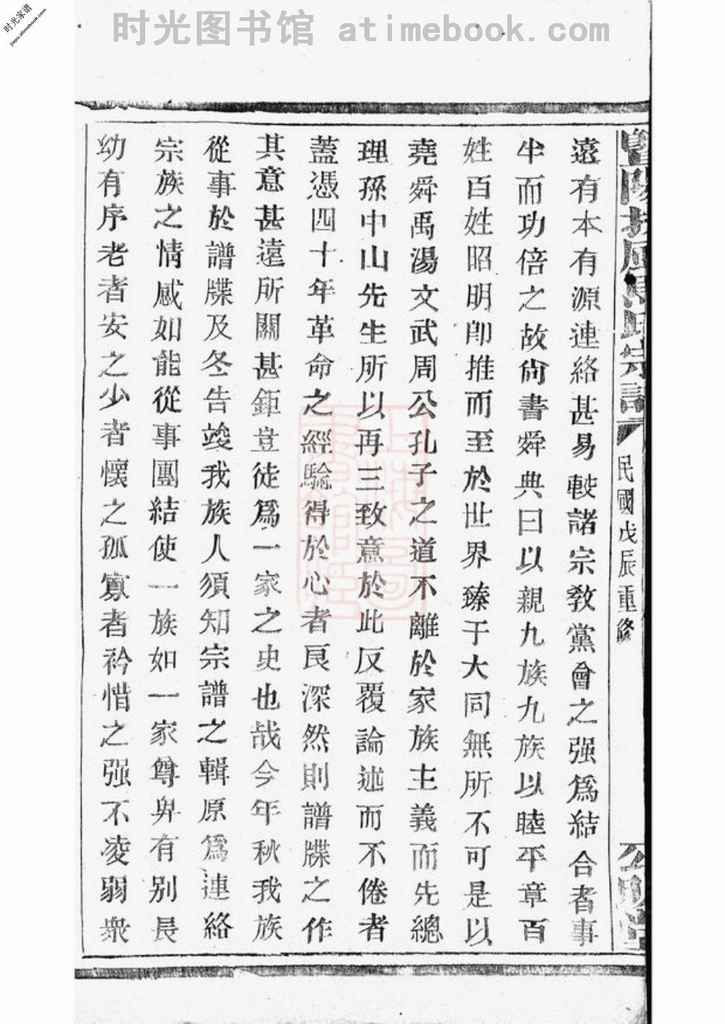 时光图书馆 atimebook.com
时光家谱
遠有本有源連絡甚易較諸宗教黨會之强爲結合者事
半而功倍之故尙書舜典曰以親九族九族以睦平章百
姓百姓昭明卽推而至於世界臻于大同無所不可是以
堯舜禹湯文武周公孔子之道不離於家族主義而先總
理孫中山先生所以再三致意於此反覆論述而不倦者
蓋憑四十年革命之經驗得於心者良深然則譜牒之作
其意甚遠所關甚鉅豈徒爲一家之史也哉今年秋我族
從事於譜牒及冬告竣我族人須知宗譜之輯原爲連絡
宗族之情感如能從事團結使一族如一家尊卑有別長
幼有序老者安之少者懷之孤寡者矜惜之强不凌弱衆
暨陽扶風馬氏宗譜
民國戊辰重修